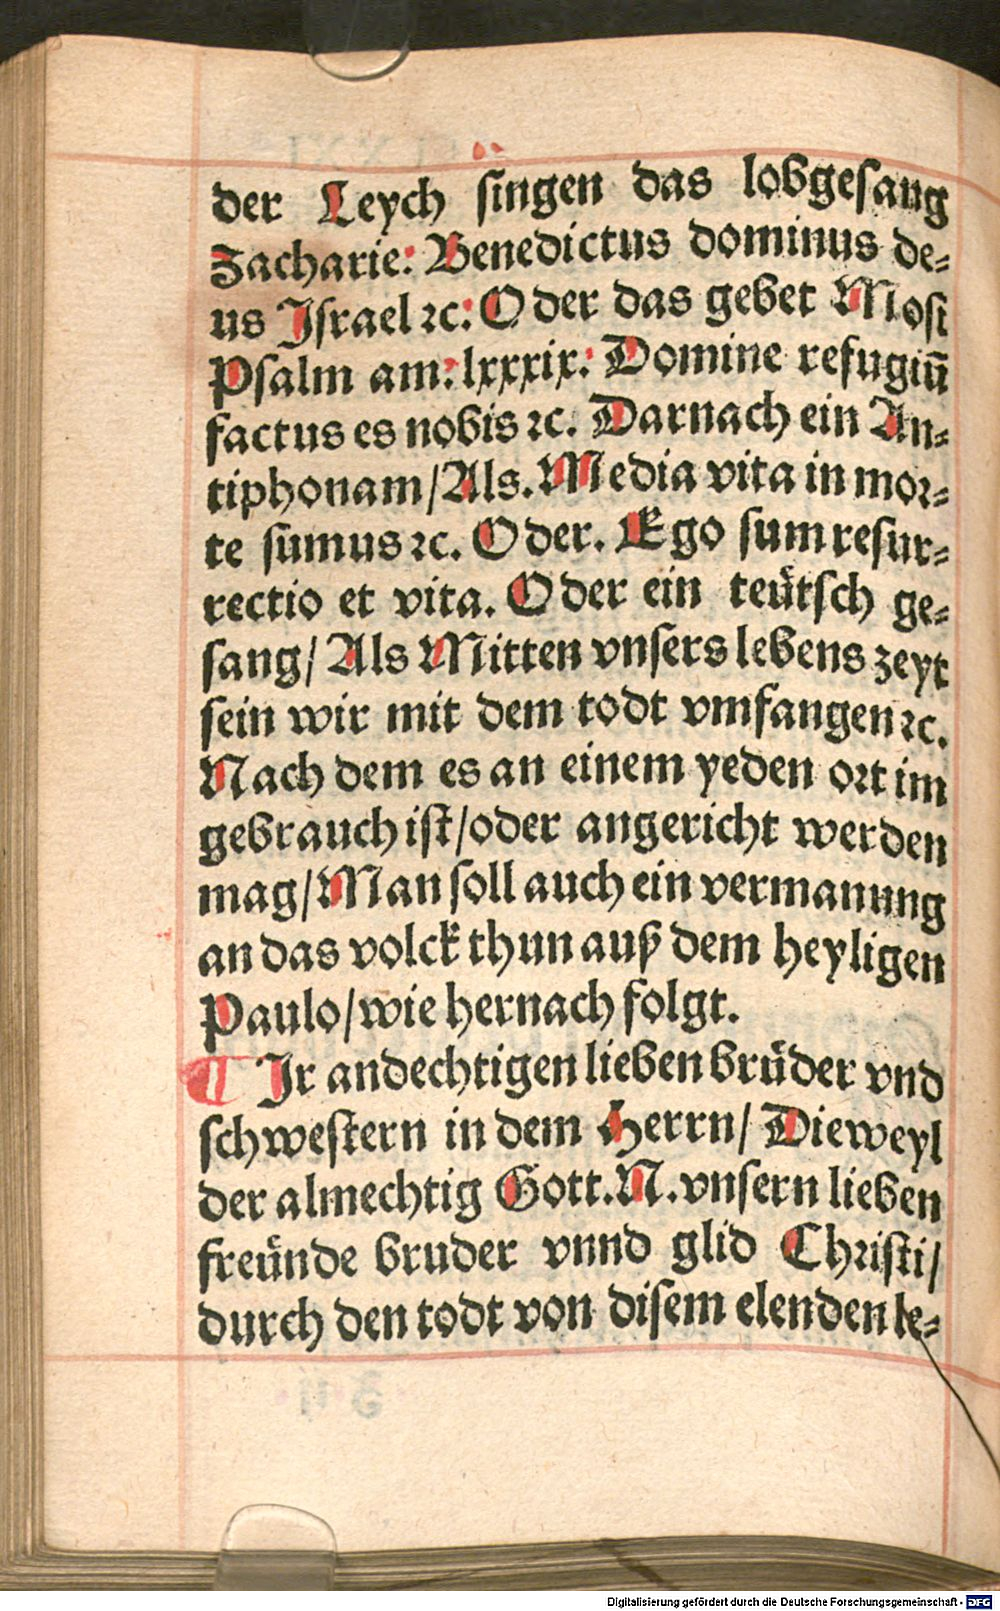 der Leych singen das lobgesang
Zacharie: Benedictus dominus de⸗
us Jsrael ⁊c: Oder das gebet Mosi
Psalm am: lxxxix: Domine refugiū
factus es nobis ⁊c. Darnach ein An⸗
tiphonam/Als. Media vita in mor⸗
te sumus ⁊c. Oder. Ego sum resur⸗
rectio et vita. Oder ein teütsch ge⸗
sang/ Als Mitten vnsers lebens zeyt
sein wir mit dem todt vmfangen ⁊c.
Nach dem es an einem yeden ort im
gebrauch ist/oder angericht werden
mag/Man soll auch ein vermanung
an das volck thun auß dem heyligen
Paulo/wie hernach folgt.
¶ Jr andechtigen lieben brüder vnd
schwestern in dem Herrn/ Dieweyl
der almechtig Gott. N. vnsern lieben
freünde bruder vnnd glid Christi/
durch den todt von disem elenden le⸗
Digitalisierung gefördert durch die Deutsche Forschungsgemeinschaft - DFG